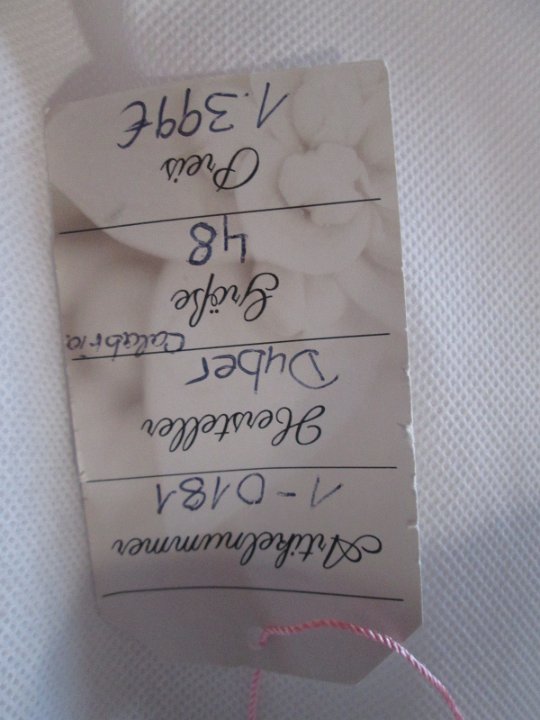 Artikelnummer
1-0181
Hersteller
Dyber
Calabria
Größe
48
Preis
1.399€